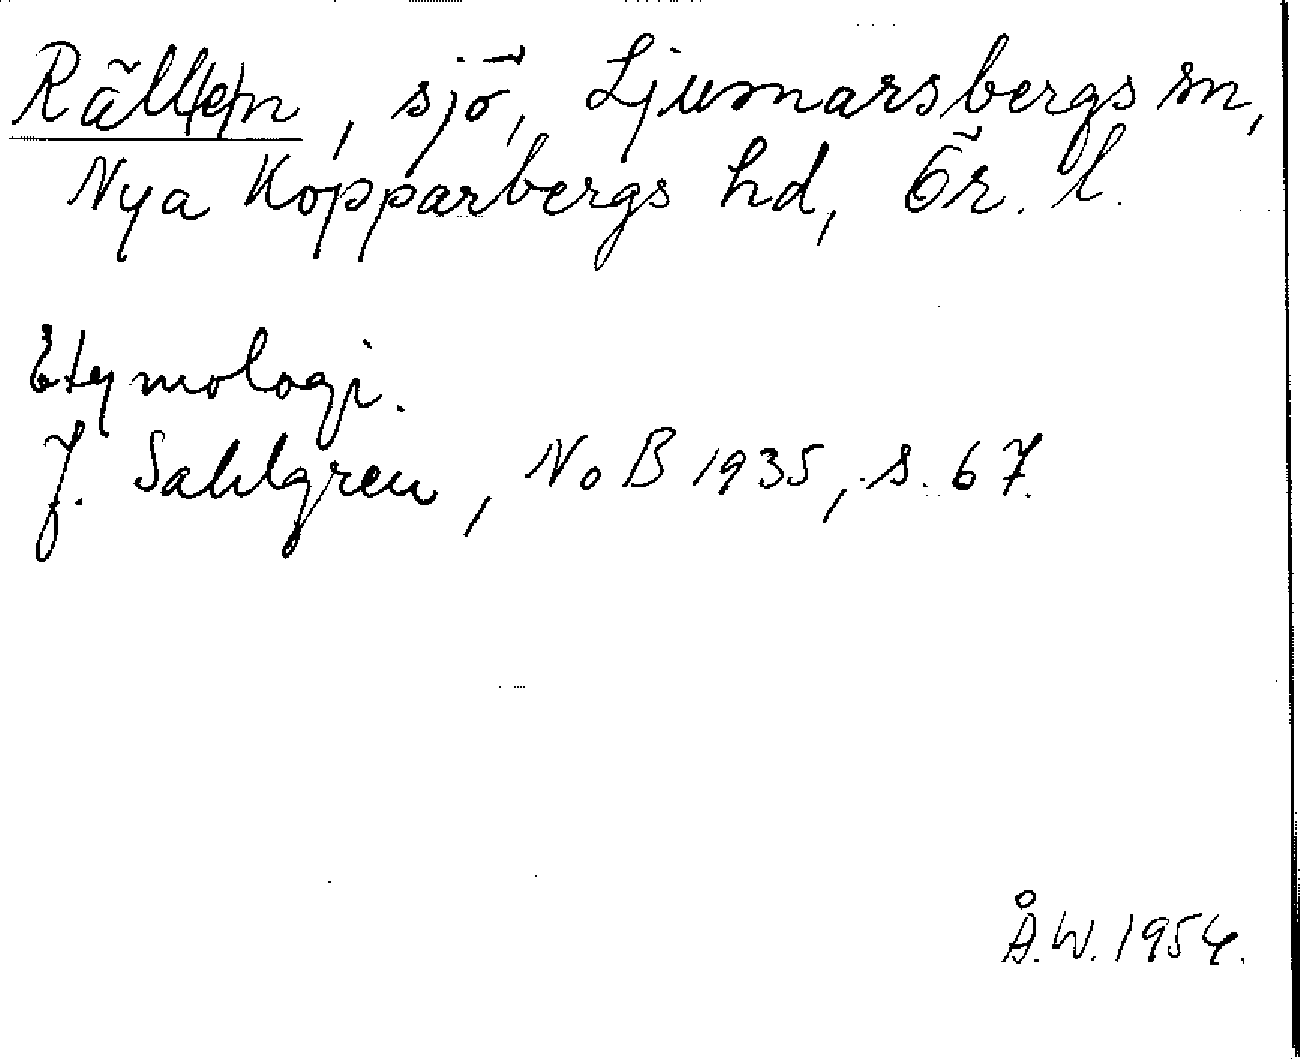 Räll(e)n, sjö, Ljusnarsbergs sn,
Nya Kopparbergs hd, Ör. l.
Etymologi.
J. Sahlgren, NoB 1935, s. 67.
Å.W. 1954.